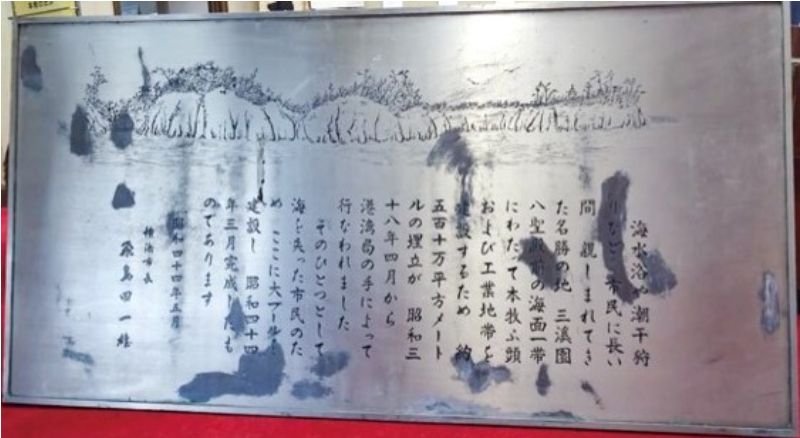 海水浴や潮干狩
りなど 市民に長い
間 親しまれてき
た名勝の地 三溪園
八聖殿前の海面一帯
にわたって本牧ふ頭
および工業地帯を
建設するため 約
五百十万平方メート
ルの埋立が 昭和三
十八年四月から
港湾局の手によって
行なわれました
そのひとつとして
海を失った市民のた
め ここに大プールを
建設し 昭和四十四
年三月完成したも
のであります
昭和四十四年五月
横浜市長
飛鳥田一雄